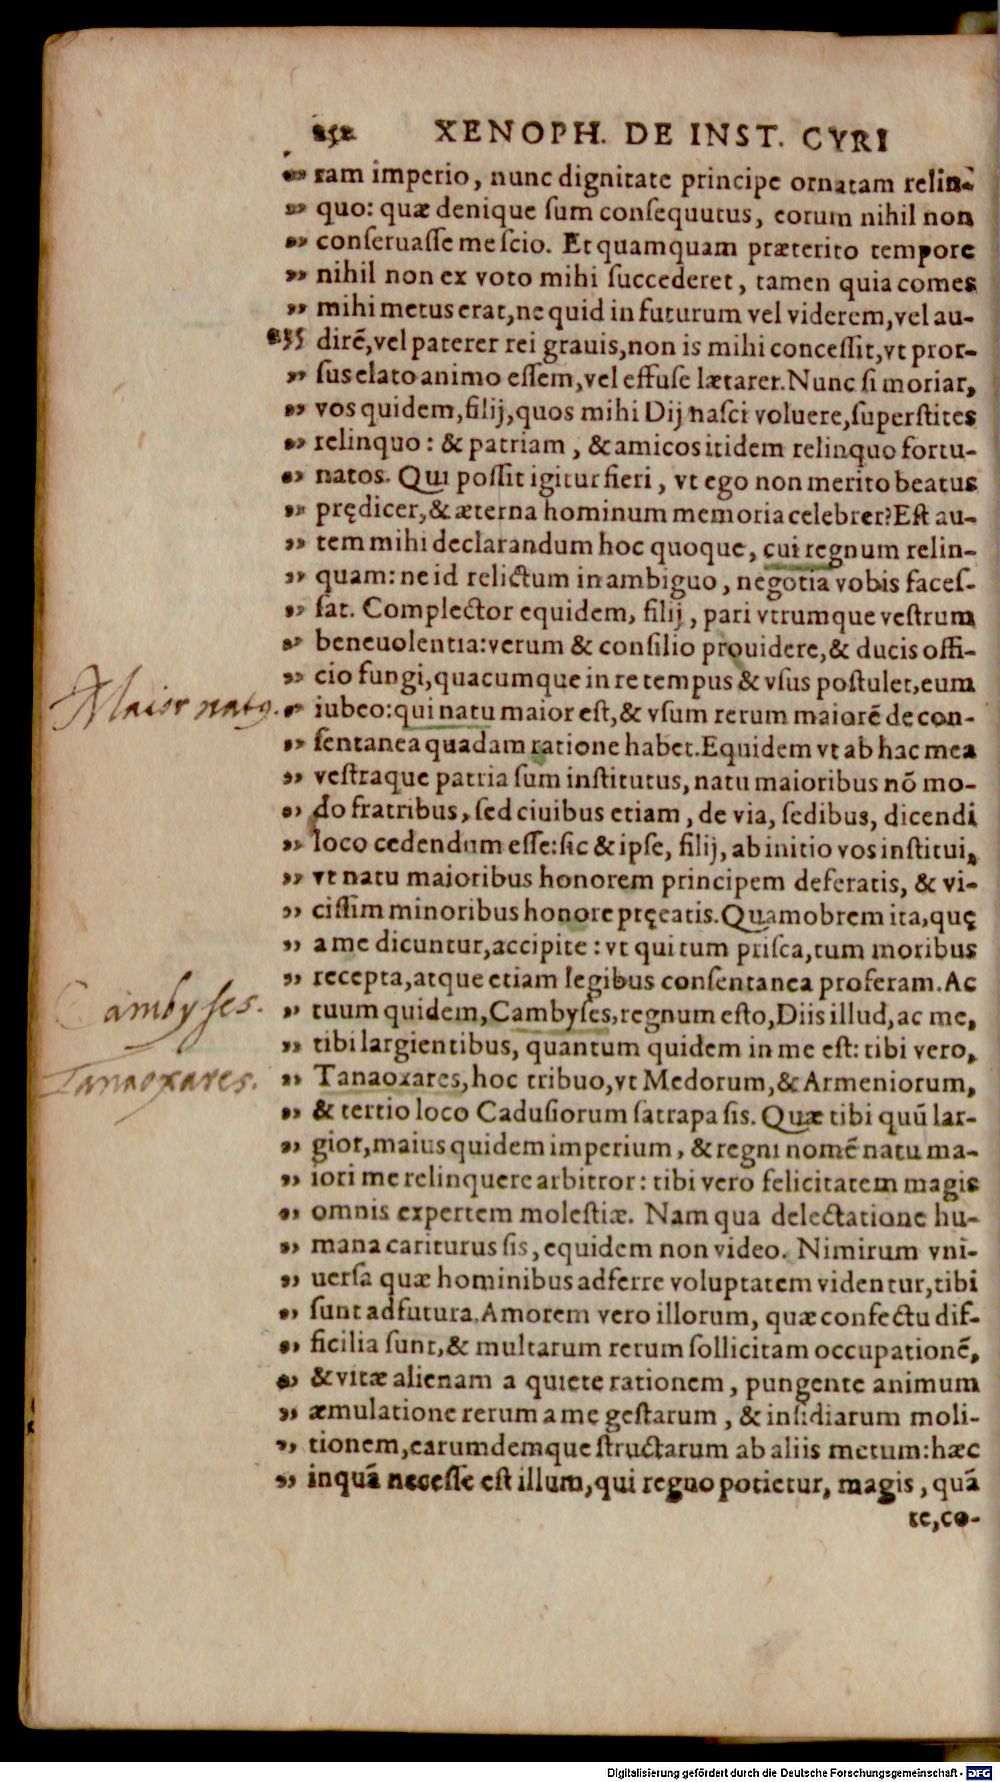 852 XENOPH. DE INST. CYRI
„ ram imperio, nunc dignitate principe ornatam relin-
„ quo: quæ denique sum consequutus, eorum nihil non
„ conseruasse me scio. Et quamquam præterito tempore
„ nihil non ex voto mihi succederet, tamen quia comes
„ mihi metus erat, ne quid in futurum vel viderem, vel au-
835 dirẽ, vel paterer rei grauis, non is mihi concessit, vt pror-
„ sus elato animo essem, vel effuse lætarer. Nunc si moriar,
„ vos quidem, filij, quos mihi Dij nasci voluere, superstites
„ relinquo: & patriam, & amicos itidem relinquo fortu-
„ natos. Qui possit igitur fieri, vt ego non merito beatus
„ prędicer, & æterna hominum memoria celebrer? Est au-
„ tem mihi declarandum hoc quoque, cui regnum relin-
„ quam: ne id relictum in ambiguo, negotia vobis faces-
„ sat. Complector equidem, filij, pari vtrumque vestrum
„ beneuolentia: verum & consilio prouidere, & ducis offi-
„ cio fungi, quacumque in re tempus & vsus postulet, eum
Maior natꝰ. „ iubeo: qui natu maior est, & vsum rerum maiorẽ de con-
„ sentanea quadam ratione habet. Equidem vt ab hac mea
„ vestraque patria sum institutus, natu maioribus nõ mo-
„ do fratribus, sed ciuibus etiam, de via, sedibus, dicendi
„ loco cedendum esse: sic & ipse, filij, ab initio vos institui,
„ vt natu maioribus honorem principem deferatis, & vi-
„ cissim minoribus honore pręeatis. Quamobrem ita, quę
„ a me dicuntur, accipite: vt qui tum prisca, tum moribus
„ recepta, atque etiam legibus consentanea proferam. Ac
Cambyses. „ tuum quidem, Cambyses, regnum esto, Diis illud, ac me,
„ tibi largientibus, quantum quidem in me est: tibi vero,
Tanaoxares. „ Tanaoxares, hoc tribuo, vt Medorum, & Armeniorum,
„ & tertio loco Cadusiorum satrapa sis. Quæ tibi quũ lar-
„ gior, maius quidem imperium, & regni nomẽ natu ma-
„ iori me relinquere arbitror: tibi vero felicitatem magis
„ omnis expertem molestiæ. Nam qua delectatione hu-
„ mana cariturus sis, equidem non video. Nimirum vni-
„ uersa quæ hominibus adferre voluptatem videntur, tibi
„ sunt adfutura. Amorem vero illorum, quæ confectu dif-
„ ficilia sunt, & multarum rerum sollicitam occupationẽ,
„ & vitæ alienam a quiete rationem, pungente animum
„ æmulatione rerum a me gestarum, & insidiarum moli-
„ tionem, earumdemque structarum ab aliis metum: hæc
„ inquã necesse est illum, qui regno potietur, magis, quã
te, co-
Digitalisierung gefördert durch die Deutsche Forschungsgemeinschaft - DFG